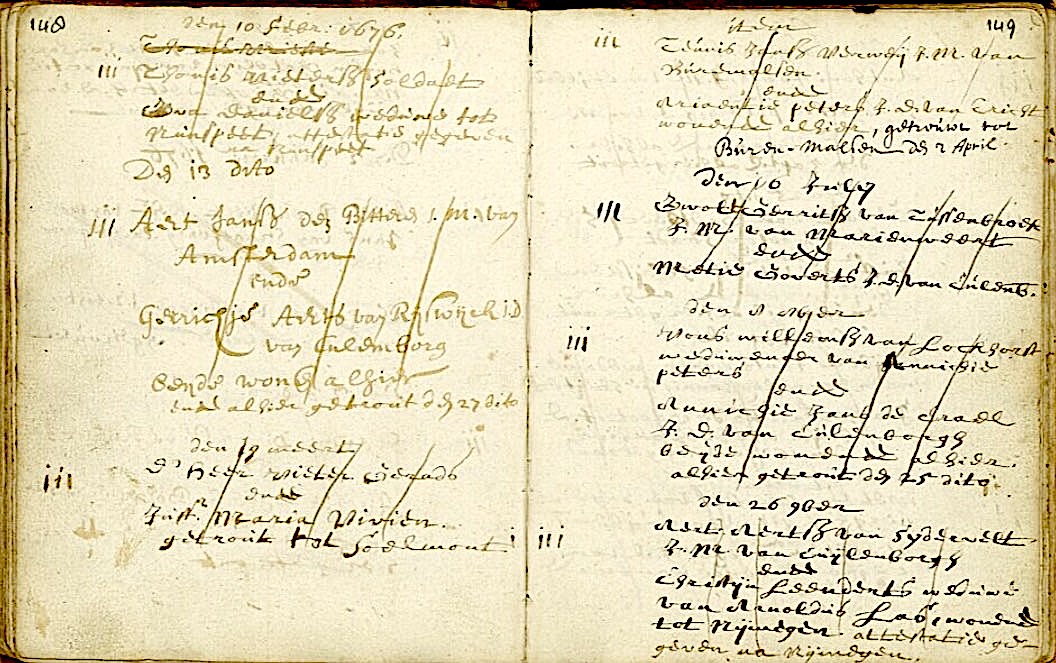 148
den 10 Febr: 1676.
iii
Thonis Pietersz Soldaet
ende
Daniels weduwe tot
Nunspeet, attestatie gegeven
na Nunspeet
Den 13 dito
iii Aert Jansz den Bitteren J.M. van
Amsterdam
ende
Gerrichje Aerts van Rijswijck J.D
van Culemborg
beyde wonen alhier
ende alhier getrout den 27 dito
den 19 meert
iii
D' Heer Pieter
ende
Juffr. Maria Vivien
getrout tot Soelmont
149
item
iii
Teunis Jansz Verweij J. M. van
Buremalsen
ende
Ariaentie peters J. D. van Tricht
wonende alhier, getrouwt tot
Buren-Malsen den 2 April
den 16 July
iii
Gerritsz van
J. M. van Marienweert
ende
Metie Goverts J. d. van Culenb.
den
iii
willemsz van Lockhorst
weduwenaer van Annichie
peters
ende
Annichie Jans de
J. D. van Culenborgh
beyde wonende alhier.
alhier getrout den 25 dito
den 26 9ber
iii
Aert Aertsz van Zydervelt
J. M. van Cuylenborgh
ende
Christijn Leenderts weduwe
van Arnoldus Las, wonende
tot Nijmegen attestatie ge-
geven na Nijmegen.